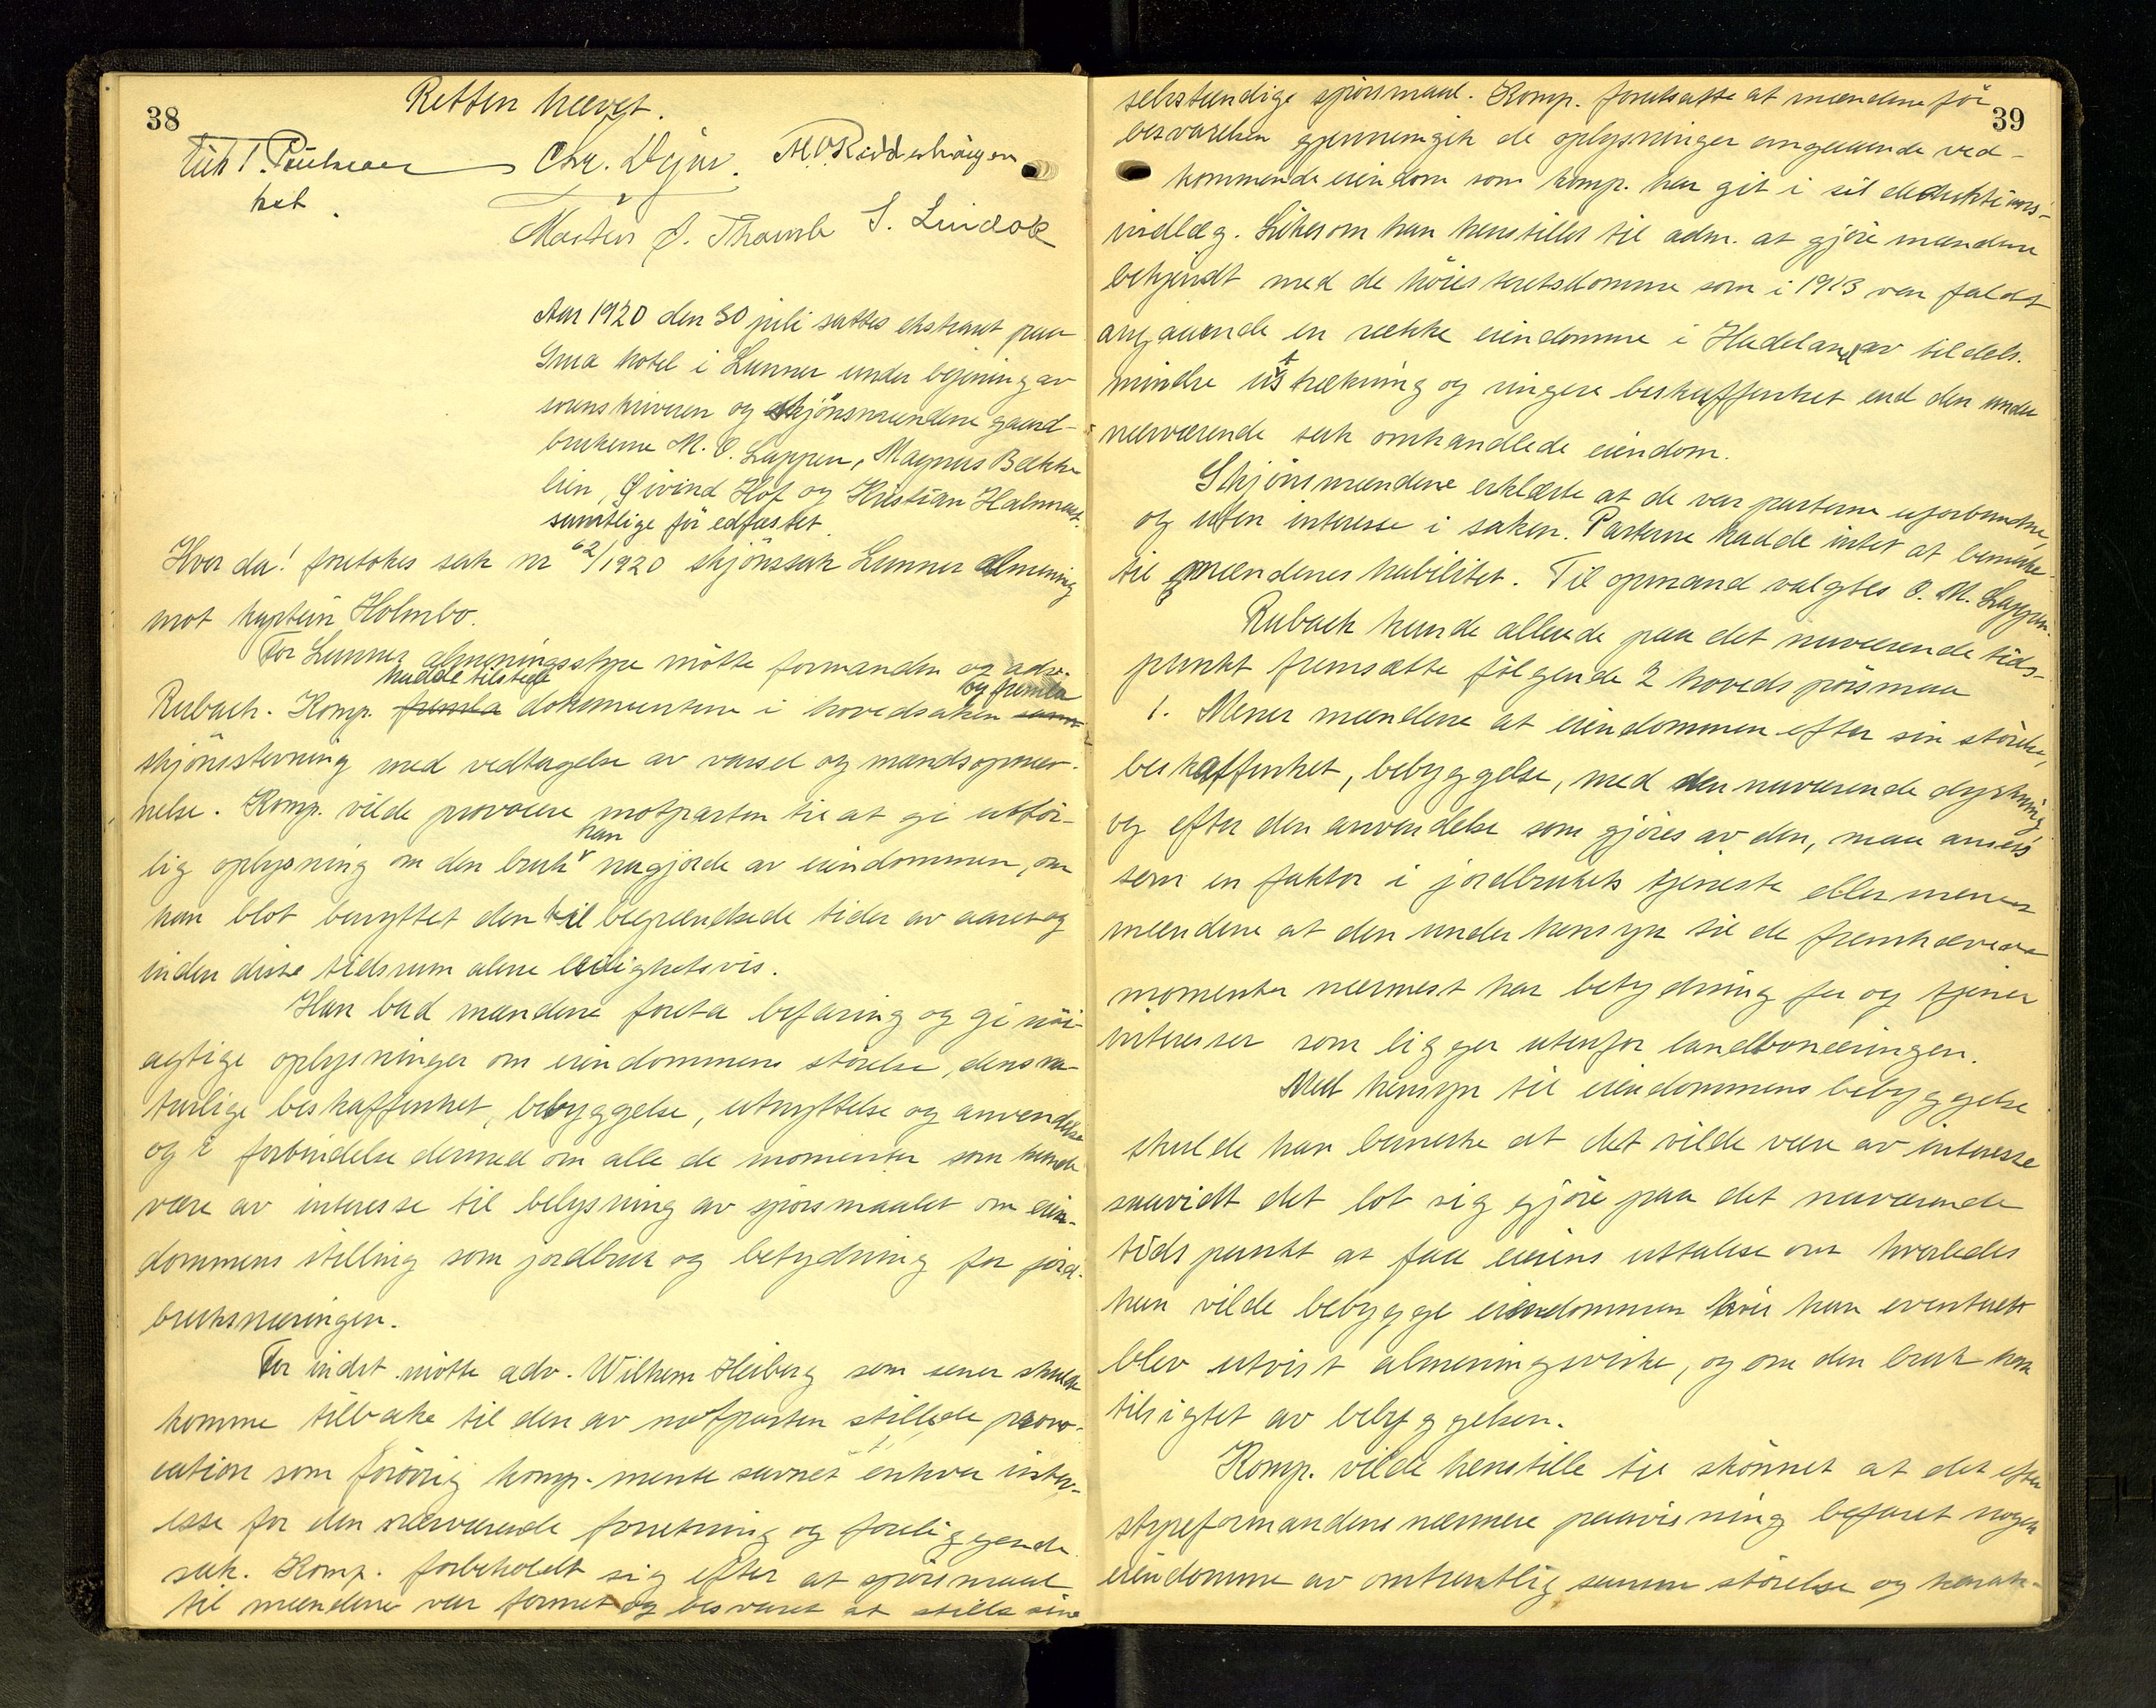 38
Retten hævet.
Chr. Dejns. M. O. Ridderhaugen
kst.
Morten J. Thomle S. Lindok
Aar 1920 den 30 juli sattes ekstraret paa
Grua hotel i Lunner under betjening av
sorenskriveren og skjönsmændene gaard-
brukerne M. O. Lappen, Magnus Bække
lien, Øivind Hof og Kristian Halmrast.
samtlige før edfæstet.
Hvor da! foretokes sak nr 62/1920 skjönssak Lunner almening
mot kaptein Holmbo.
For Lunner almeningsstyre mötte formanden og adv.
hadde tilstede og fremla
Rubach. Komp. fremla dokumenterne i hovedsaken samt
skjönsstevning med vedtagelse av varsel og mandsopnæv-
nelse. Komp. vilde provocere motparten til at gi utför-
han
lig oplysning om den bruk nu gjorde av eiendommen, om
han blot benyttet den til begrændsede tider av aaret og
inden disse tidsrum alene leilighetsvis.
Han bad mændene foreta befaring og gi nöi-
agtige oplysninger om eiendommens störelse, dens na-
turlige beskaffenhet, bebyggelse, utnyttelse og anvendelse
og i forbindelse dermed om alle de momenter som kunde
være av interesse til belysning av spörsmaalet om eien-
dommens stilling som jordbruk og betydning for jord-
bruksnæringen.
For indst. mötte adv. Wilhelm Heiberg som senere skulde
komme tilbake til den av motparten stillede provo-
cation som forövrig komp. mente savnet enhver inter-
esse for den nærværende forretning og foreliggende
sak. Komp. forbeholdt sig efter at spörsmaal
til mændene var formet og besvaret at stille sine
39
selvstændige spörsmaal. Komp. forutsatte at mændene för
besvarelsen gjennemgik de oplysninger angaaende ved-
kommende eiendom som komp. har git i sit deduktions-
indlæg. Likesom han henstillet til adm. at gjöre mændene
bekjendt med de höiesteretsdomme som i 1913 var faldt
angaaende en række eiendomme i Hadeland av tildels
mindre utstrækning og ringere beskaffenhet end den under
nærværende sak omhandlede eiendom.
Skjönsmændene erklærte at de var parterne uforbundne,
og uten interesse i saken. Parterne hadde intet at bemerke
til mændenes habilitet. Til opmand valgtes O. M. Lappen.
Rubach kunde allerede paa det nuværende tids-
punkt fremsætte fölgende 2 hovedspörsmaal
1. Mener mændene at eiendommen efter sin störelse,
beskaffenhet, bebyggelse, med den nuværende dyrkning
og efter den anvendelse som gjöres av den, maa ansees
som en faktor i jordbrukets tjeneste eller mener
mændene at den under hensyn til de fremhævede
momenter nærmest har betydning for og tjener
interesser som ligger utenfor landbonæringen.
Med hensyn til eiendommens bebyggelse
skulde han bemerke at det vilde være av interesse
saavidt det lot sig gjöre paa det nuværende
tidspunkt at faa eierens uttalelse om hvorledes
han vilde bebygge eiendommen hvis han eventuelt
blev utvist almeningsvirke, og om den bruk han
tilsigtet av bebyggelsen.
Komp. vilde henstille til skönnet at det efter
styreformandens nærmere paavisning befaret nogen
eiendomme av omtrentlig samme störelse og karak-